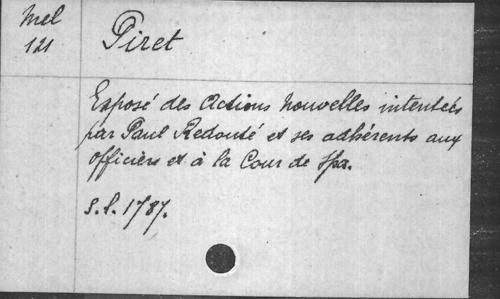 Mel
121
Piret
Exposé des Actions nouvelles intentées
par Paul Redouté et ses adhérents aux
officiers et à la Cour de Spa.
S.l. 1787.